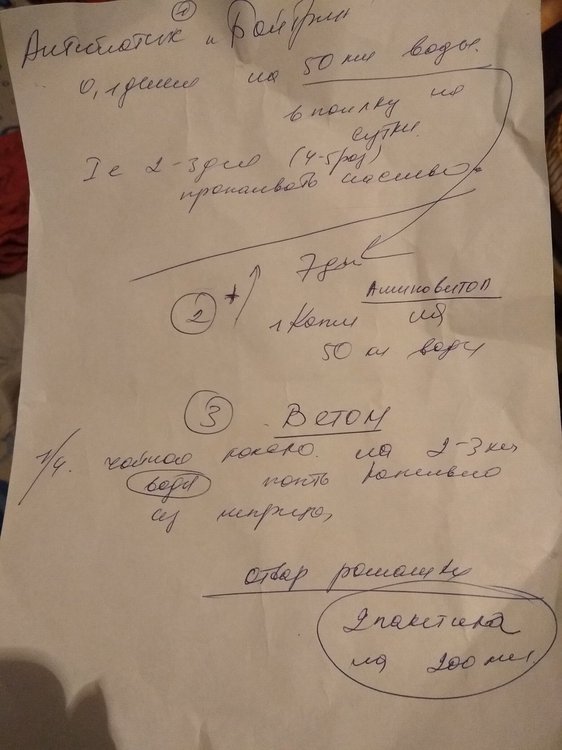 ①
Антибиотик и Байтрил
0,1 дели на 50 мл воды.
в поилку на
сутки.
I е 2-3 дня (4-5 раз)
пропаивать насильно.
7 дн
② +
Аминовитал
1 капли на
50 мл воды
③ Ветом
1/4 чайной ложки на 2-3 мл
воды поить капельно
из шприца,
отвар ромашки
2 пакетика
на 200 мл.